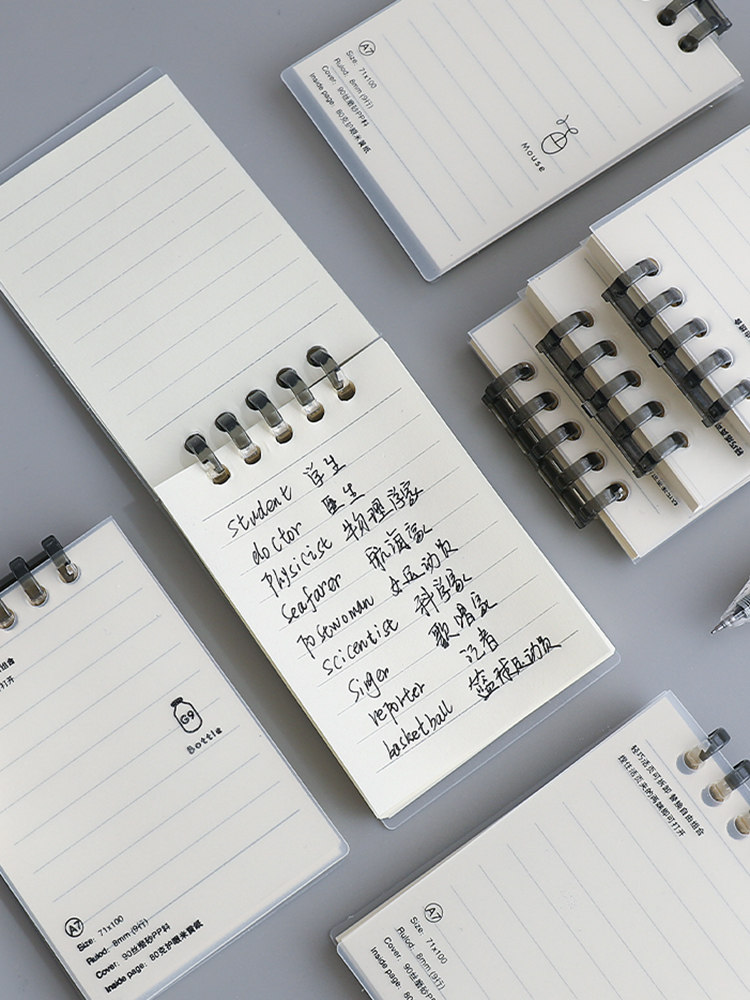 A7
Size: 71x100
Rulod: 8mm (9行)
Cover: 90丝磨砂PP料
Inside page: 80克护眼米黄纸
Mouse
student 学生
doctor 医生
physicist 物理学家
seafarer 航海家
postwoman 女运动员
scientist 科学家
singer 歌唱家
reporter 记者
basketball 篮球运动员
G9
Bottle
A7
Size: 71x100
Rulod: 8mm (9行)
Cover: 90丝磨砂PP料
Inside page: 80克护眼米黄纸
轻巧活页可拆卸 替换自由组合
捏住活页夹的两端即可打开
A7
Size: 71x100
Rulod: 8mm (9行)
Cover: 90丝磨砂PP
Inside page: 80克